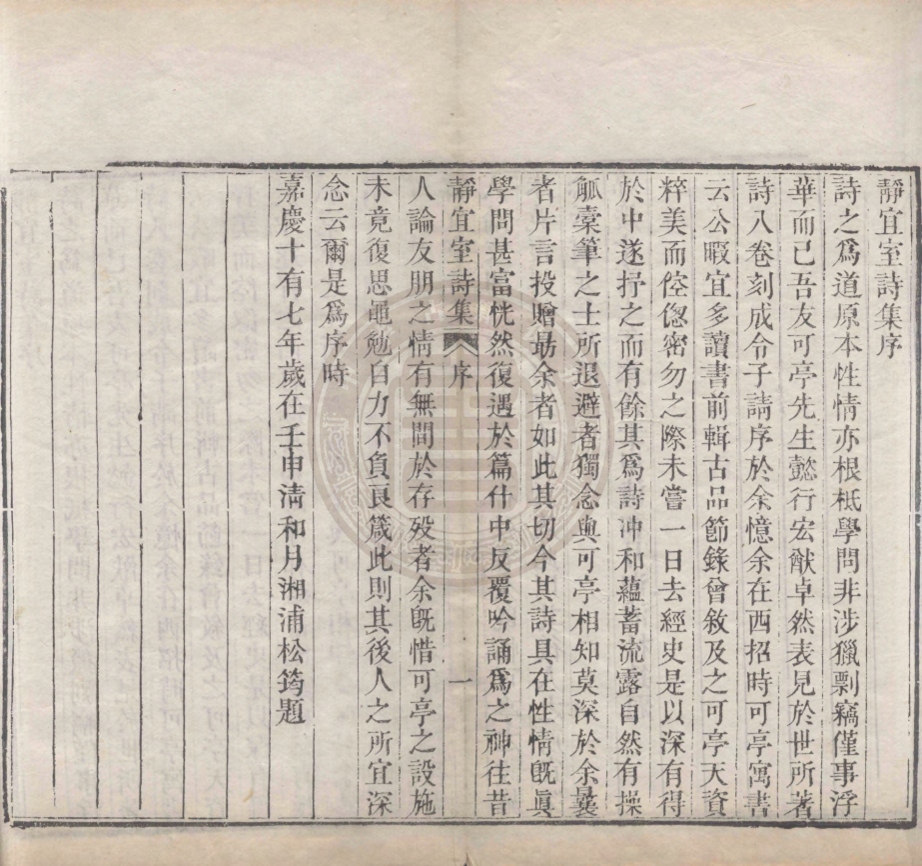 靜宜室詩集序
詩之爲道原本性情亦根柢學問非涉獵剽竊僅事浮
華而已吾友可亭先生懿行宏猷卓然表見於世所著
詩八卷刻成令子請序於余憶余在西招時可亭寓書
云公暇宜多讀書前輯古品節錄曾敘及之可亭天資
粹美而倥傯密勿之際未嘗一日去經史是以深有得
於中遂抒之而有餘其爲詩沖和蘊蓄流露自然有操
觚橐筆之士所退避者獨念與可亭相知莫深於余曩
者片言投贈勗余者如此其切今其詩具在性情旣眞
學問甚富恍然復遇於篇什中反覆吟誦爲之神往昔
靜宜室詩集 序 一
人論友朋之情有無間於存歿者余旣惜可亭之設施
未竟復思黽勉自力不負良箴此則其後人之所宜深
念云爾是爲序時
嘉慶十有七年歲在壬申淸和月湘浦松筠題